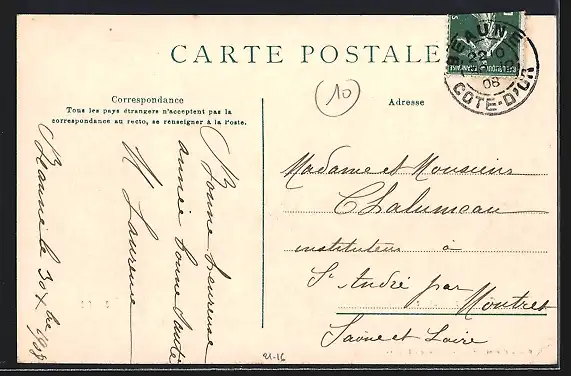 CARTE POSTALE
BEAUNE
08
COTE-D'OR
10
Correspondance
Tous les pays étrangers n'acceptent pas la
correspondance au recto, se renseigner à la Poste.
Adresse
Beaune le 30 Xbre 1908
Bonne heureuse
année bonne santé
Laurence
Madame et Monsieur
Chalumeau
instituteur à
St André par
Montret
Saône et Loire
21-16